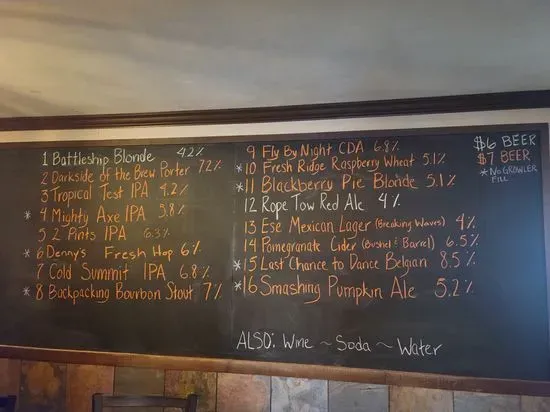 1 Battleship Blonde 4.2%
2 Darkside of the Brew Porter 7.2%
3 Tropical Test IPA 4.2%
* 4 Mighty Axe IPA 5.8%
5 2 Pints IPA 6.3%
* 6 Denny's Fresh Hop 6%
7 Cold Summit IPA 6.8%
* 8 Backpacking Bourbon Stout 7%
9 Fly By Night CDA 6.8%
* 10 Fresh Ridge Raspberry Wheat 5.1%
* 11 Blackberry Pie Blonde 5.1%
12 Rope Tow Red Ale 4%
13 Ese Mexican Lager (Breaking Waves) 4%
14 Pomegranate Cider (Bushel & Barrel) 6.5%
* 15 Last Chance to Dance Belgian 8.5%
* 16 Smashing Pumpkin Ale 5.2%
ALSO: Wine ~ Soda ~ Water
$6 BEER
$7 BEER
* NO GROWLER
FILL